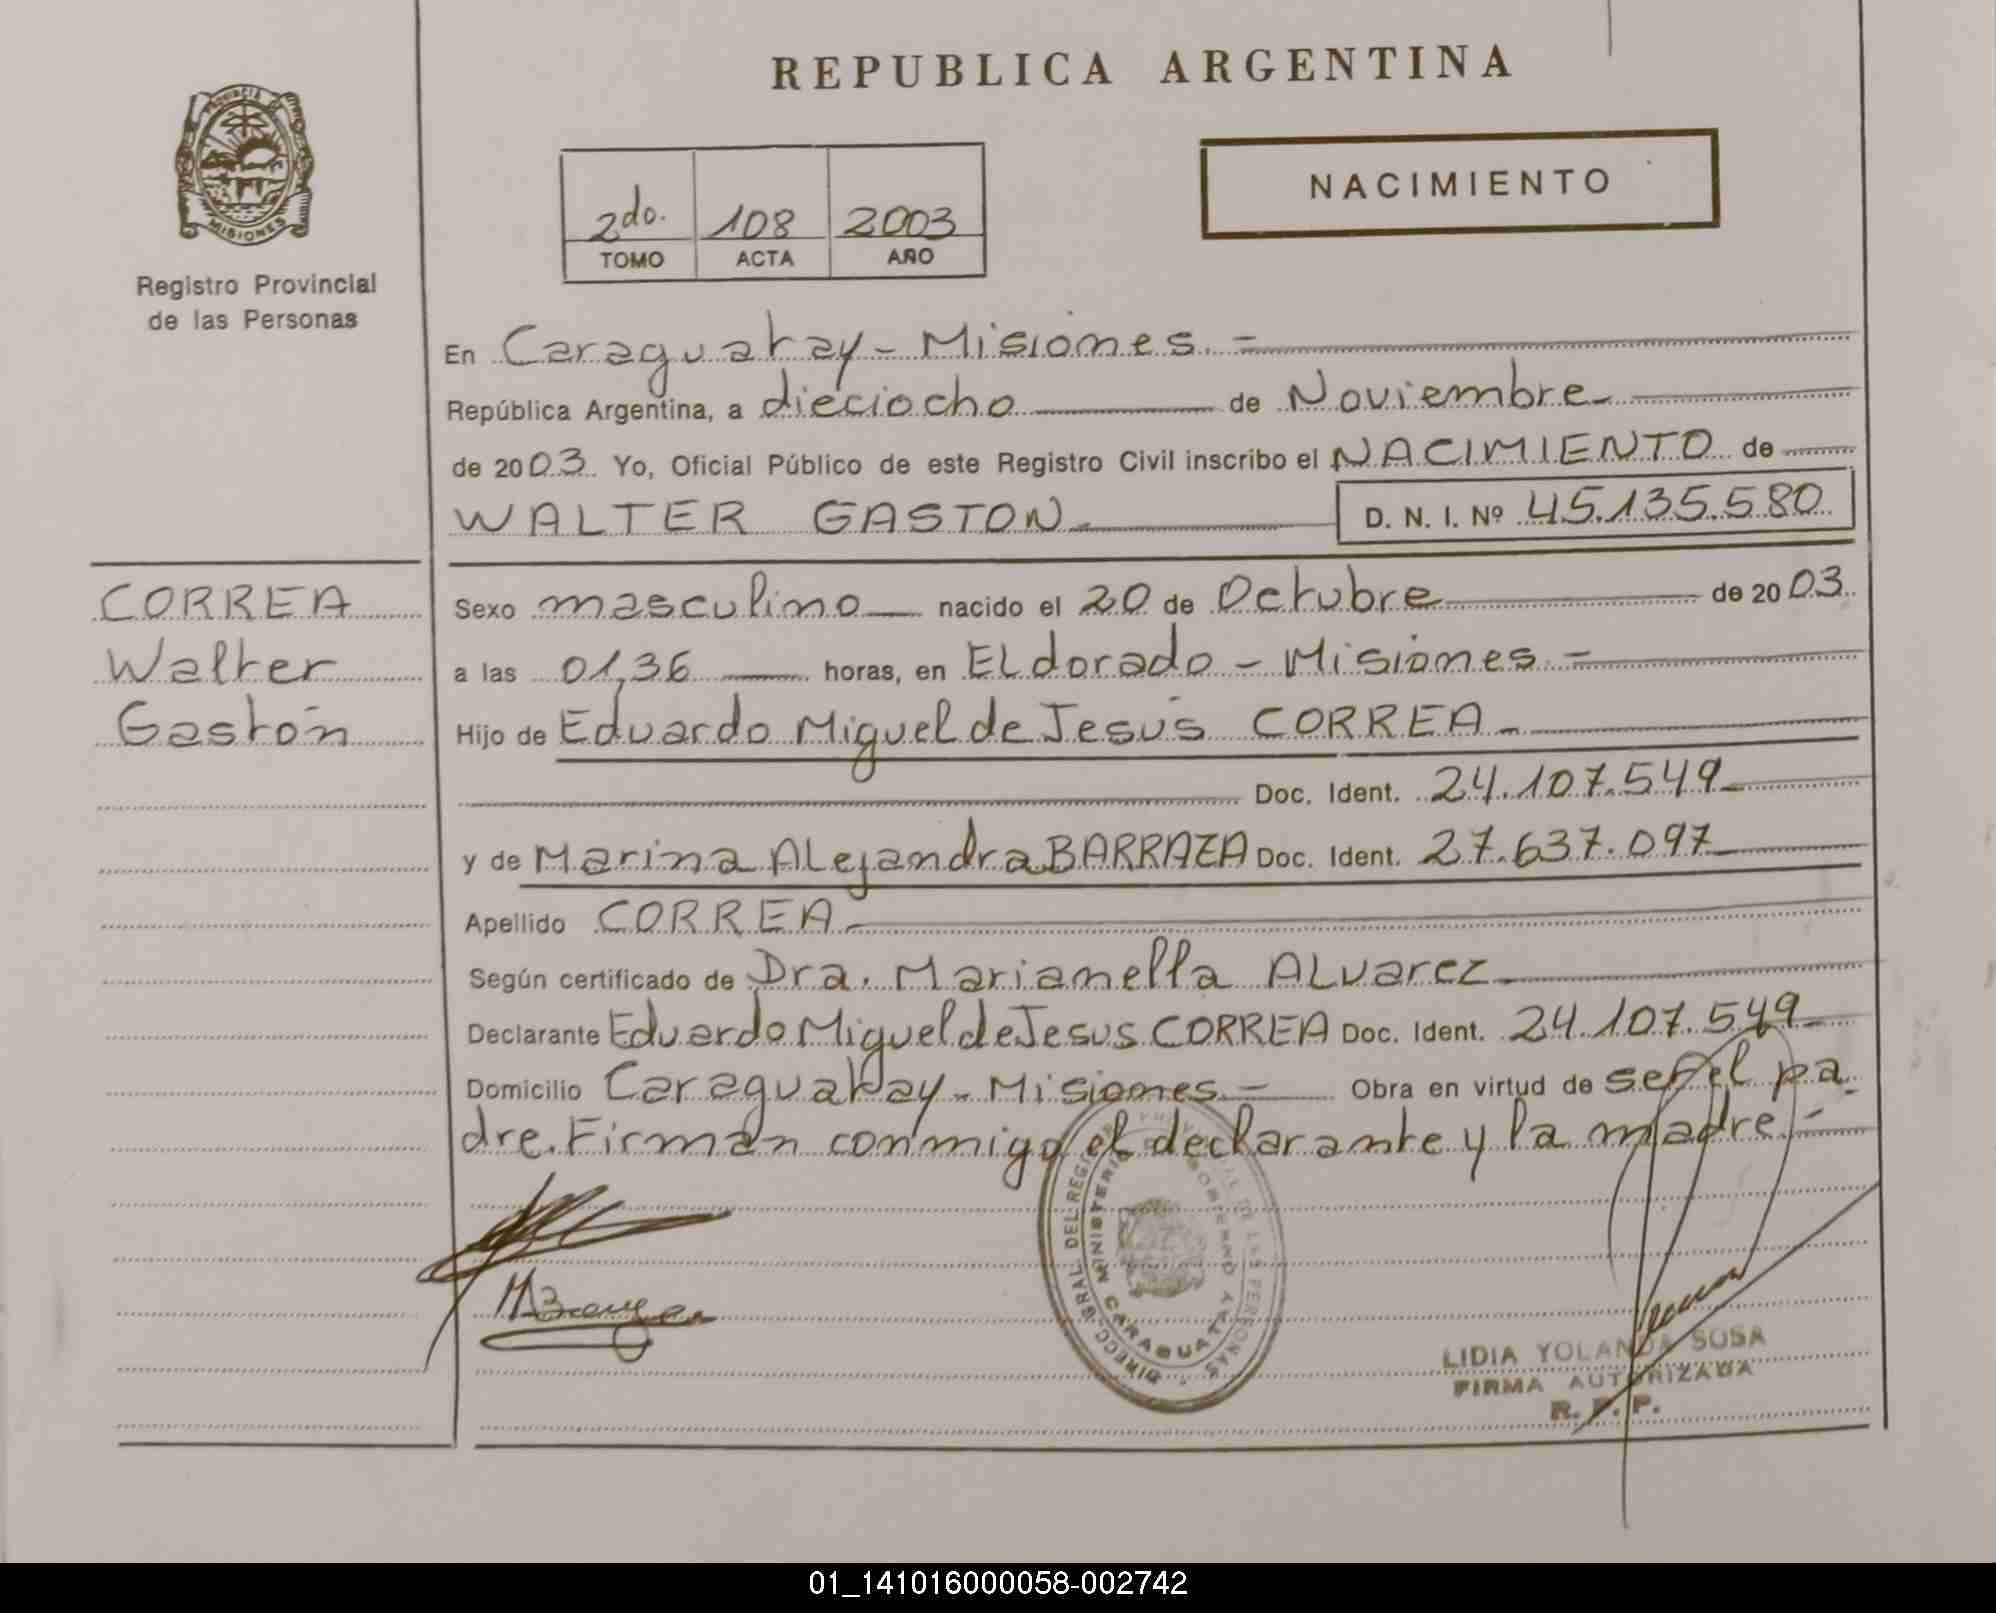 REPUBLICA ARGENTINA
PROVINCIA DE
MISIONES
Registro Provincial
de las Personas
2do. 108 2003
TOMO ACTA AÑO
NACIMIENTO
En Caraguatay - Misiones. =
República Argentina, a dieciocho de Noviembre
de 2003. Yo, Oficial Público de este Registro Civil inscribo el NACIMIENTO de
WALTER GASTON D. N. I. Nº 45.135.580
CORREA
Walter
Gastón
Sexo masculino nacido el 20 de Octubre de 2003
a las 01,36 horas, en Eldorado - Misiones =
Hijo de Eduardo Miguel de Jesús CORREA
Doc. Ident. 24.107.549
y de Marina Alejandra BARRAZA Doc. Ident. 27.637.097
Apellido CORREA
Según certificado de Dra. Marianella Alvarez
Declarante Eduardo Miguel de Jesus CORREA Doc. Ident. 24.107.549
Domicilio Caraguatay - Misiones = Obra en virtud de ser el pa
dre. Firman conmigo el declarante y la madre. =
DIRECC. GRAL. DEL REG DE LAS PERSONAS
MINISTERIO GOBIERNO Y
CARAGUATAY
LIDIA YOLANDA SOSA
FIRMA AUTORIZADA
R. P. P.
01_141016000058-002742